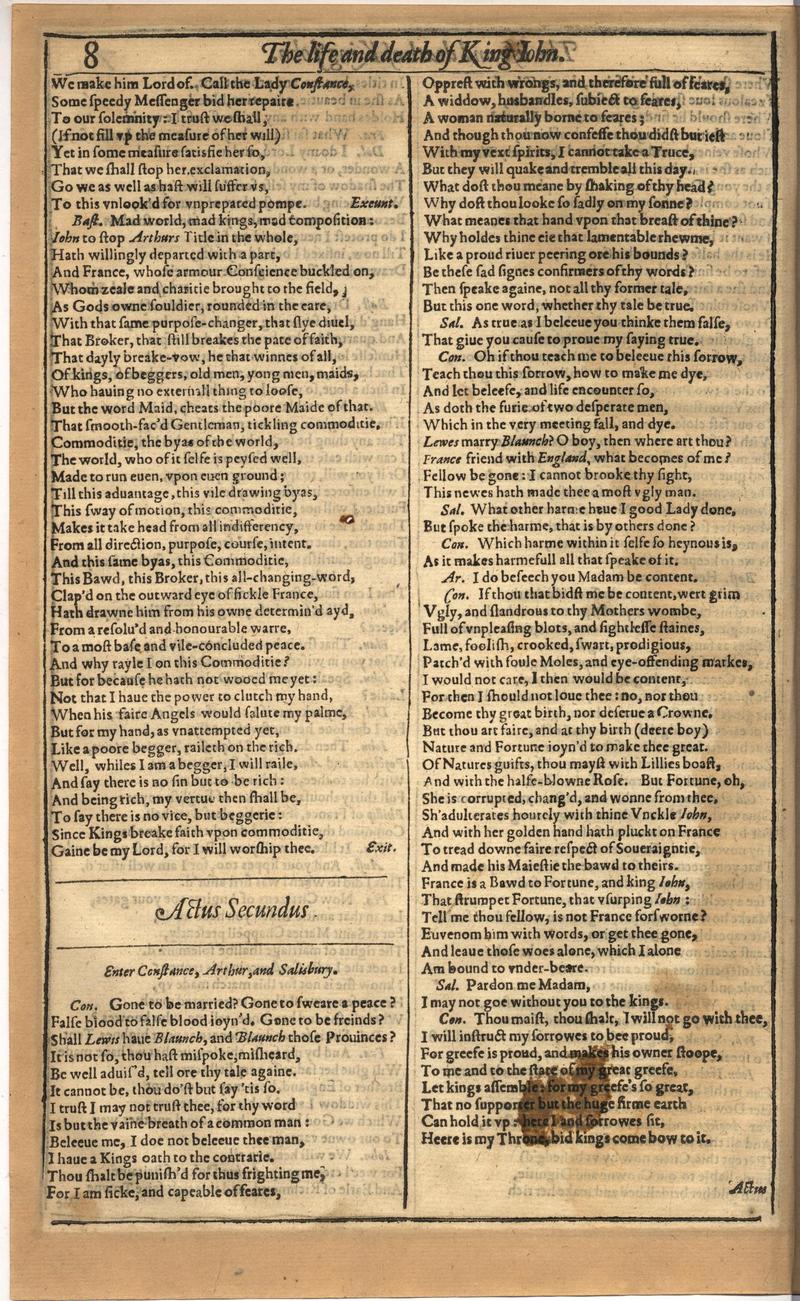 8
The life and death of King Iohn.
We make him Lord of. Call the Lady Conſtance,
Some ſpeedy Meſſenger bid her repaire
To our ſolemnity: I truſt we ſhall,
(If not fill vp the meaſure of her will)
Yet in ſome meaſure ſatisfie her ſo,
That we ſhall ſtop her exclamation,
Go we as well as haſt will ſuffer vs,
To this vnlook'd for vnprepared pompe. Exeunt.
Baſt. Mad world, mad kings, mad compoſition:
Iohn to ſtop Arthurs Title in the whole,
Hath willingly departed with a part,
And France, whoſe armour Conſcience buckled on,
Whom zeale and charitie brought to the field,
As Gods owne ſouldier, rounded in the eare,
With that ſame purpoſe-changer, that ſlye diuel,
That Broker, that ſtill breakes the pate of faith,
That dayly breake-vow, he that winnes of all,
Of kings, of beggers, old men, yong men, maids,
Who hauing no externall thing to looſe,
But the word Maid, cheats the poore Maide of that.
That ſmooth-fac'd Gentleman, tickling commoditie,
Commoditie, the byas of the world,
The world, who of it ſelfe is peyſed well,
Made to run euen, vpon euen ground;
Till this aduantage, this vile drawing byas,
This ſway of motion, this commoditie,
Makes it take head from all indifferency,
From all direction, purpoſe, courſe, intent.
And this ſame byas, this Commoditie,
This Bawd, this Broker, this all-changing-word,
Clap'd on the outward eye of fickle France,
Hath drawne him from his owne determin'd ayd,
From a reſolu'd and honourable warre,
To a moſt baſe and vile-concluded peace.
And why rayle I on this Commoditie?
But for becauſe he hath not wooed me yet:
Not that I haue the power to clutch my hand,
When his faire Angels would ſalute my palme,
But for my hand, as vnattempted yet,
Like a poore begger, raileth on the rich.
Well, whiles I am a begger, I will raile,
And ſay there is no ſin but to be rich:
And being rich, my vertue then ſhall be,
To ſay there is no vice, but beggerie:
Since Kings breake faith vpon commoditie,
Gaine be my Lord, for I will worſhip thee. Exit.
Actus Secundus.
Enter Conſtance, Arthur, and Salisbury.
Con. Gone to be married? Gone to ſweare a peace?
Falſe blood to falſe blood ioyn'd. Gone to be freinds?
Shall Lewis haue Blaunch, and Blaunch thoſe Prouinces?
It is not ſo, thou haſt miſpoke, miſheard,
Be well aduiſ'd, tell ore thy tale againe.
It cannot be, thou do'ſt but ſay 'tis ſo.
I truſt I may not truſt thee, for thy word
Is but the vaine breath of a common man:
Beleeue me, I doe not beleeue thee man,
I haue a Kings oath to the contrarie.
Thou ſhalt be puniſh'd for thus frighting me,
For I am ſicke, and capeable of feares,
Oppreſt with wrongs, and therefore full of feares,
A widdow, husbandles, ſubiect to feares,
A woman naturally borne to feares;
And though thou now confeſſe thou didſt but ieſt
With my vext ſpirits, I cannot take a Truce,
But they will quake and tremble all this day.
What doſt thou meane by ſhaking of thy head?
Why doſt thou looke ſo ſadly on my ſonne?
What meanes that hand vpon that breaſt of thine?
Why holdes thine eie that lamentable rhewme,
Like a proud riuer peering ore his bounds?
Be theſe ſad ſignes confirmers of thy words?
Then ſpeake againe, not all thy former tale,
But this one word, whether thy tale be true.
Sal. As true as I beleeue you thinke them falſe,
That giue you cauſe to proue my ſaying true.
Con. Oh if thou teach me to beleeue this ſorrow,
Teach thou this ſorrow, how to make me dye,
And let beleefe, and life encounter ſo,
As doth the furie of two deſperate men,
Which in the very meeting fall, and dye.
Lewes marry Blaunch? O boy, then where art thou?
France friend with England, what becomes of me?
Fellow be gone: I cannot brooke thy ſight,
This newes hath made thee a moſt vgly man.
Sal. What other harme haue I good Lady done,
But ſpoke the harme, that is by others done?
Con. Which harme within it ſelfe ſo heynous is,
As it makes harmefull all that ſpeake of it.
Ar. I do beſeech you Madam be content.
Con. If thou that bidſt me be content, wert grim
Vgly, and ſlandrous to thy Mothers wombe,
Full of vnpleaſing blots, and ſightleſſe ſtaines,
Lame, fooliſh, crooked, ſwart, prodigious,
Patch'd with foule Moles, and eye-offending markes,
I would not care, I then would be content,
For then I ſhould not loue thee: no, nor thou
Become thy great birth, nor deſerue a Crowne.
But thou art faire, and at thy birth (deere boy)
Nature and Fortune ioyn'd to make thee great.
Of Natures guifts, thou mayſt with Lillies boaſt,
And with the halfe-blowne Roſe. But Fortune, oh,
She is corrupted, chang'd, and wonne from thee,
Sh'adulterates hourely with thine Vnckle Iohn,
And with her golden hand hath pluckt on France
To tread downe faire reſpect of Soueraigntie,
And made his Maieſtie the bawd to theirs.
France is a Bawd to Fortune, and king Iohn,
That ſtrumpet Fortune, that vſurping Iohn:
Tell me thou fellow, is not France forſworne?
Euvenom him with words, or get thee gone,
And leaue thoſe woes alone, which I alone
Am bound to vnder-beare.
Sal. Pardon me Madam,
I may not goe without you to the kings.
Con. Thou maiſt, thou ſhalt, I will not go with thee,
I will inſtruct my ſorrowes to bee proud,
For greefe is proud, and makes his owner ſtoope,
To me and to the ſtate of my great greefe,
Let kings aſſemble: for my greefe's ſo great,
That no ſupporter but the huge firme earth
Can hold it vp: here I and ſorrowes ſit,
Heere is my Throne, bid kings come bow to it.
Actus